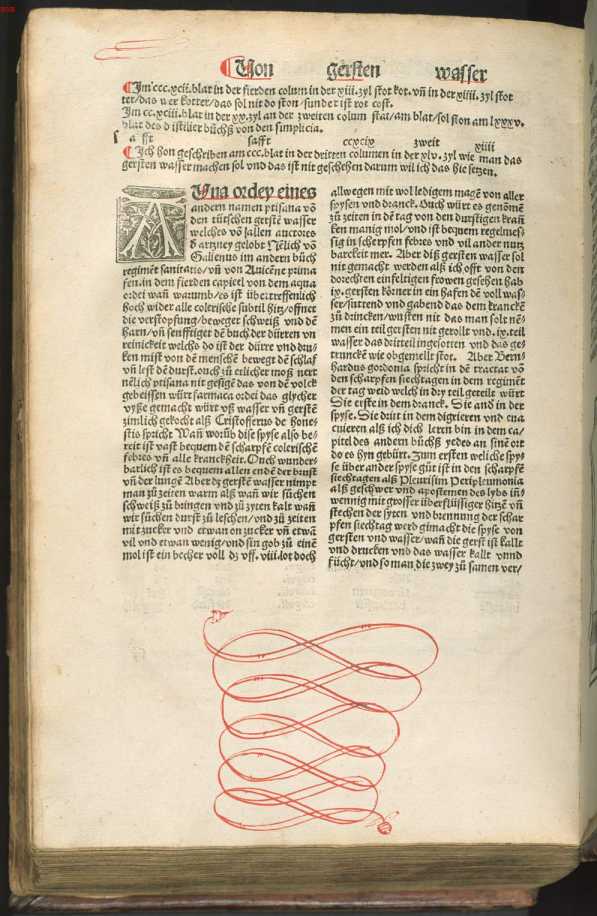 Von gersten wasser
Jm ccc.xcii.blat in der fierden colum in der xiii.zyl stot kot. vñ in der xiiii.zyl stot
ter/das wer kotter/das sol nit do ston/sunder ist rot cost.
Jm cc.xciii.blat in der xx.zyl an der zweiten colum stat/am blat/sol ston am lxxxv.
blat des distilier büchß von den simplicia.
safft ccxcix zweit xiiii
Jch hon geschriben am ccc.blat in der dritten columen in der xlv.zyl wie man das
gersten wasser machen sol vnd das ist nit geschehen darum wil ich das hie setzen.
AQua ordey eines
andern namen ptisana võ
den tütschen gerstẽ wasser
welches võ allen auctores
d artzney gelobt
Galienus im andern büch
regimẽt sanitatis/vñ von Auicẽne prima
fen.in dem fierden capitel von dem aqua
ordei wañ warumb/es ist übertreffenlich
hoch wider alle colerische subtil hitz/offnet
die verstopfung/beweget schweiß vnd dẽ
harn/vñ senfftiget dẽ buch der dürren vn
reinickeit welchs do ist der dürre vnd druc-
ken mist von dẽ menschẽ bewegt dẽ schlaf
vñ lest dẽ durst.ouch zü etlicher moß nert
nẽlich ptisana nit gesigẽ das von dẽ volck
geheissen würt farmaca ordei das glycher
vyße gemacht würt vß wasser vñ gerstẽ
zimlich gekocht alß Cristofferus de hone-
stis spricht Wañ worüb dise spyse also be-
reit ist vast bequem dẽ scharpfẽ colerischẽ
febres vñ alle kranckheit.Ouch wunder-
barlich ist es bequem allen endẽ der brust
vñ der lungẽ Aber dz gerstẽ wasser nimpt
man zü zeiten warm alß wañ wir süchen
schweiß zü bringen vnd zü zyten kalt wañ
wir süchen durst zü leschen/vnd zü zeiten
mit zucker vnd etwan on zucker vñ etwã
vil vnd etwan wenig/vnd sin gob zü einẽ
mol ist ein becher voll dz vff.viii.lot doch
allwegen mit wol ledigem magẽ von aller
spysen vnd dranck. Ouch würt es genõmẽ
zü zeiten in dẽ tag von den durstigen krañ
ken manig mol/vnd ist bequem regelmes-
sig in scherpfen febres vnd vil ander nutz
barckeit mer. Aber diß gersten wasser sol
nit gemacht werden alß ich offt von den
dorechten einfeltigen frowen gesehen hab
ix.gersten körner in ein hafen dẽ voll was-
ser/suttrend vnd gabend das dem kranckẽ
zü drincken/wusten nit das man solt nẽ-
men ein teil gersten nit gerollt vnd.ix.teil
wasser das dritteil ingesotten vnd das ge-
trunckẽ wie obgemellt stot. Aber Bern-
hardus gordonia spricht in dẽ tractat võ
den scharpfen siechtagen in dem regimẽt
der tag weid welch in dry teil geteilt würt
Die erste in dem dranck. Die and in der
spyse. Die drit in dem digrieren vnd eua
cuieren alß ich dich leren bin in dem ca/
pitel des andern büchß yedes an sinẽ ort
do es hyn gebürt. Zum ersten weliche spy-
se über ander spyse güt ist in den scharpfẽ
siechtagen alß Pleurisim Peripleumonia
alß geschwer vnd apostemen des lybs iñ-
wennig mit grosser überflüssiger hitzẽ vñ
stechen der syten vnd brennung der schar
pfen siechtag werd gimacht die spyse von
gersten vnd wasser/wañ die gerst ist kallt
vnd drucken vnd das wasser kallt vnnd
fücht/vnd so man die zwey zü samen ver/